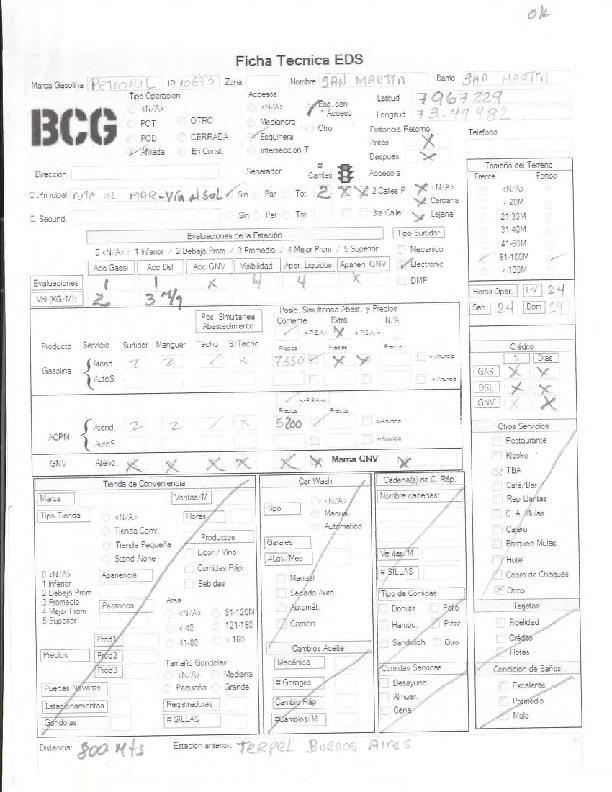 ok
Ficha Tecnica EDS
Marca Gasolina PETROMIL ID 10673 Zona Nombre SAN MARTIN Barrio SAN MARTIN
BCG
Tipo Operacion
<N/A>
PCT OTRO
POD CERRADA
Afiliada En Const.
Accesos
<N/A> Esq. con 1 Acceso
Medianero Otro
Esquinera
Interseccion T
Latitud 7967229
Longitud 73.49482
Distancia Retorno
Antes X
Despues X
Telefono
Direccion
Separador # Carriles Acceso a
C. Principal RUTA AL MAR-VIA Sin Par Tot 2 X X 2 Calles P <N/A>
Cercana
C. Secund. Sin Par Tot 3ra Calle Lejana
Tamaño del Terreno
Frente Fondo
<N/A>
< 20M
21-30M
31-40M
41-60M
61-100M
> 100M
Evaluaciones de la Estación
0 <N/A> / 1 Inferior / 2 Debajo Prom / 3 Promedio / 4 Mejor Prom / 5 Superior
Acc Gasol Acc Dsl Acc GNV Visibilidad Apar. Liquidos Aparien. GNV
Evaluaciones 1 1 X 4 4 X
Vol (KG/M): 2 3
Tipo Surtidor
Mecanico
Electronic
DMP
Horno Oper. L-V 24
Sab 24 Dom 24
Pos. Simultanea Abastecimiento
Posic. Simultanea Abast. y Precios
Corriente Extra N/A
Producto Servicio Surtidor Manguer Techo S/Techo Precios Precios Precios
Gasolina Atend. 2 2 / X 7650 X X
AutoS
ACPM Atend. 2 2 / X 5200
AutoS
GNV Atend. X X X X X X Marca GNV X
Crédito
% Dias
GAS X X
DSL X X
GNV X
Otros Servicios
Restaurante
Kiosko
TBA
Café/Ber
Rep Llantas
C. A./Mulas
Cajero
Parqueo Mulas
Hotel
Cobro de Cheques
Otros
Tarjetas
Fidelidad
Crédito
Flotas
Condición de Baños
Excelente
Promedio
Malo
Tienda de Conveniencia
Marca Ventas/M
Tipo Tienda <N/A> Flores
Tienda Conv.
Tienda Pequeña
Stand Alone
Productos
Licor / Vino
Comidas Ráp.
Bebidas
0 <N/A>
1 Inferior
2 Debajo Prom
3 Promedio
4 Mejor Prom
5 Superior
Apariencia
Area
<N/A> 81-120M
< 40 121-160
41-80 > 160
Precios Prod1
Prod2
Prod3
Tamaño Gondolas
<N/A> Mediana
Pequeña Grande
Puertas Neveras
Estacionamientos Registradoras
Gondolas # SILLAS
Car Wash
Tipo <N/A>
Manual
Automatico
Garajes
#Lav./Mes
Manual
Secado Auto
Automát.
Camión
Cambios Aceite
Mecánica
# Garages
Cambio Ráp
#Cambios/M
Cadena(s) de C. Ráp.
Nombre cadenas:
Ventas/M
# SILLAS
Tipo de Comidas
Donuts Pollo
Hambur. Pizza
Sandwich Otro
Comidas Servidas
Desayun.
Almuer.
Cena
Distancia: 800 Mts Estacion anterior: TERPEL BUENOS AIRES